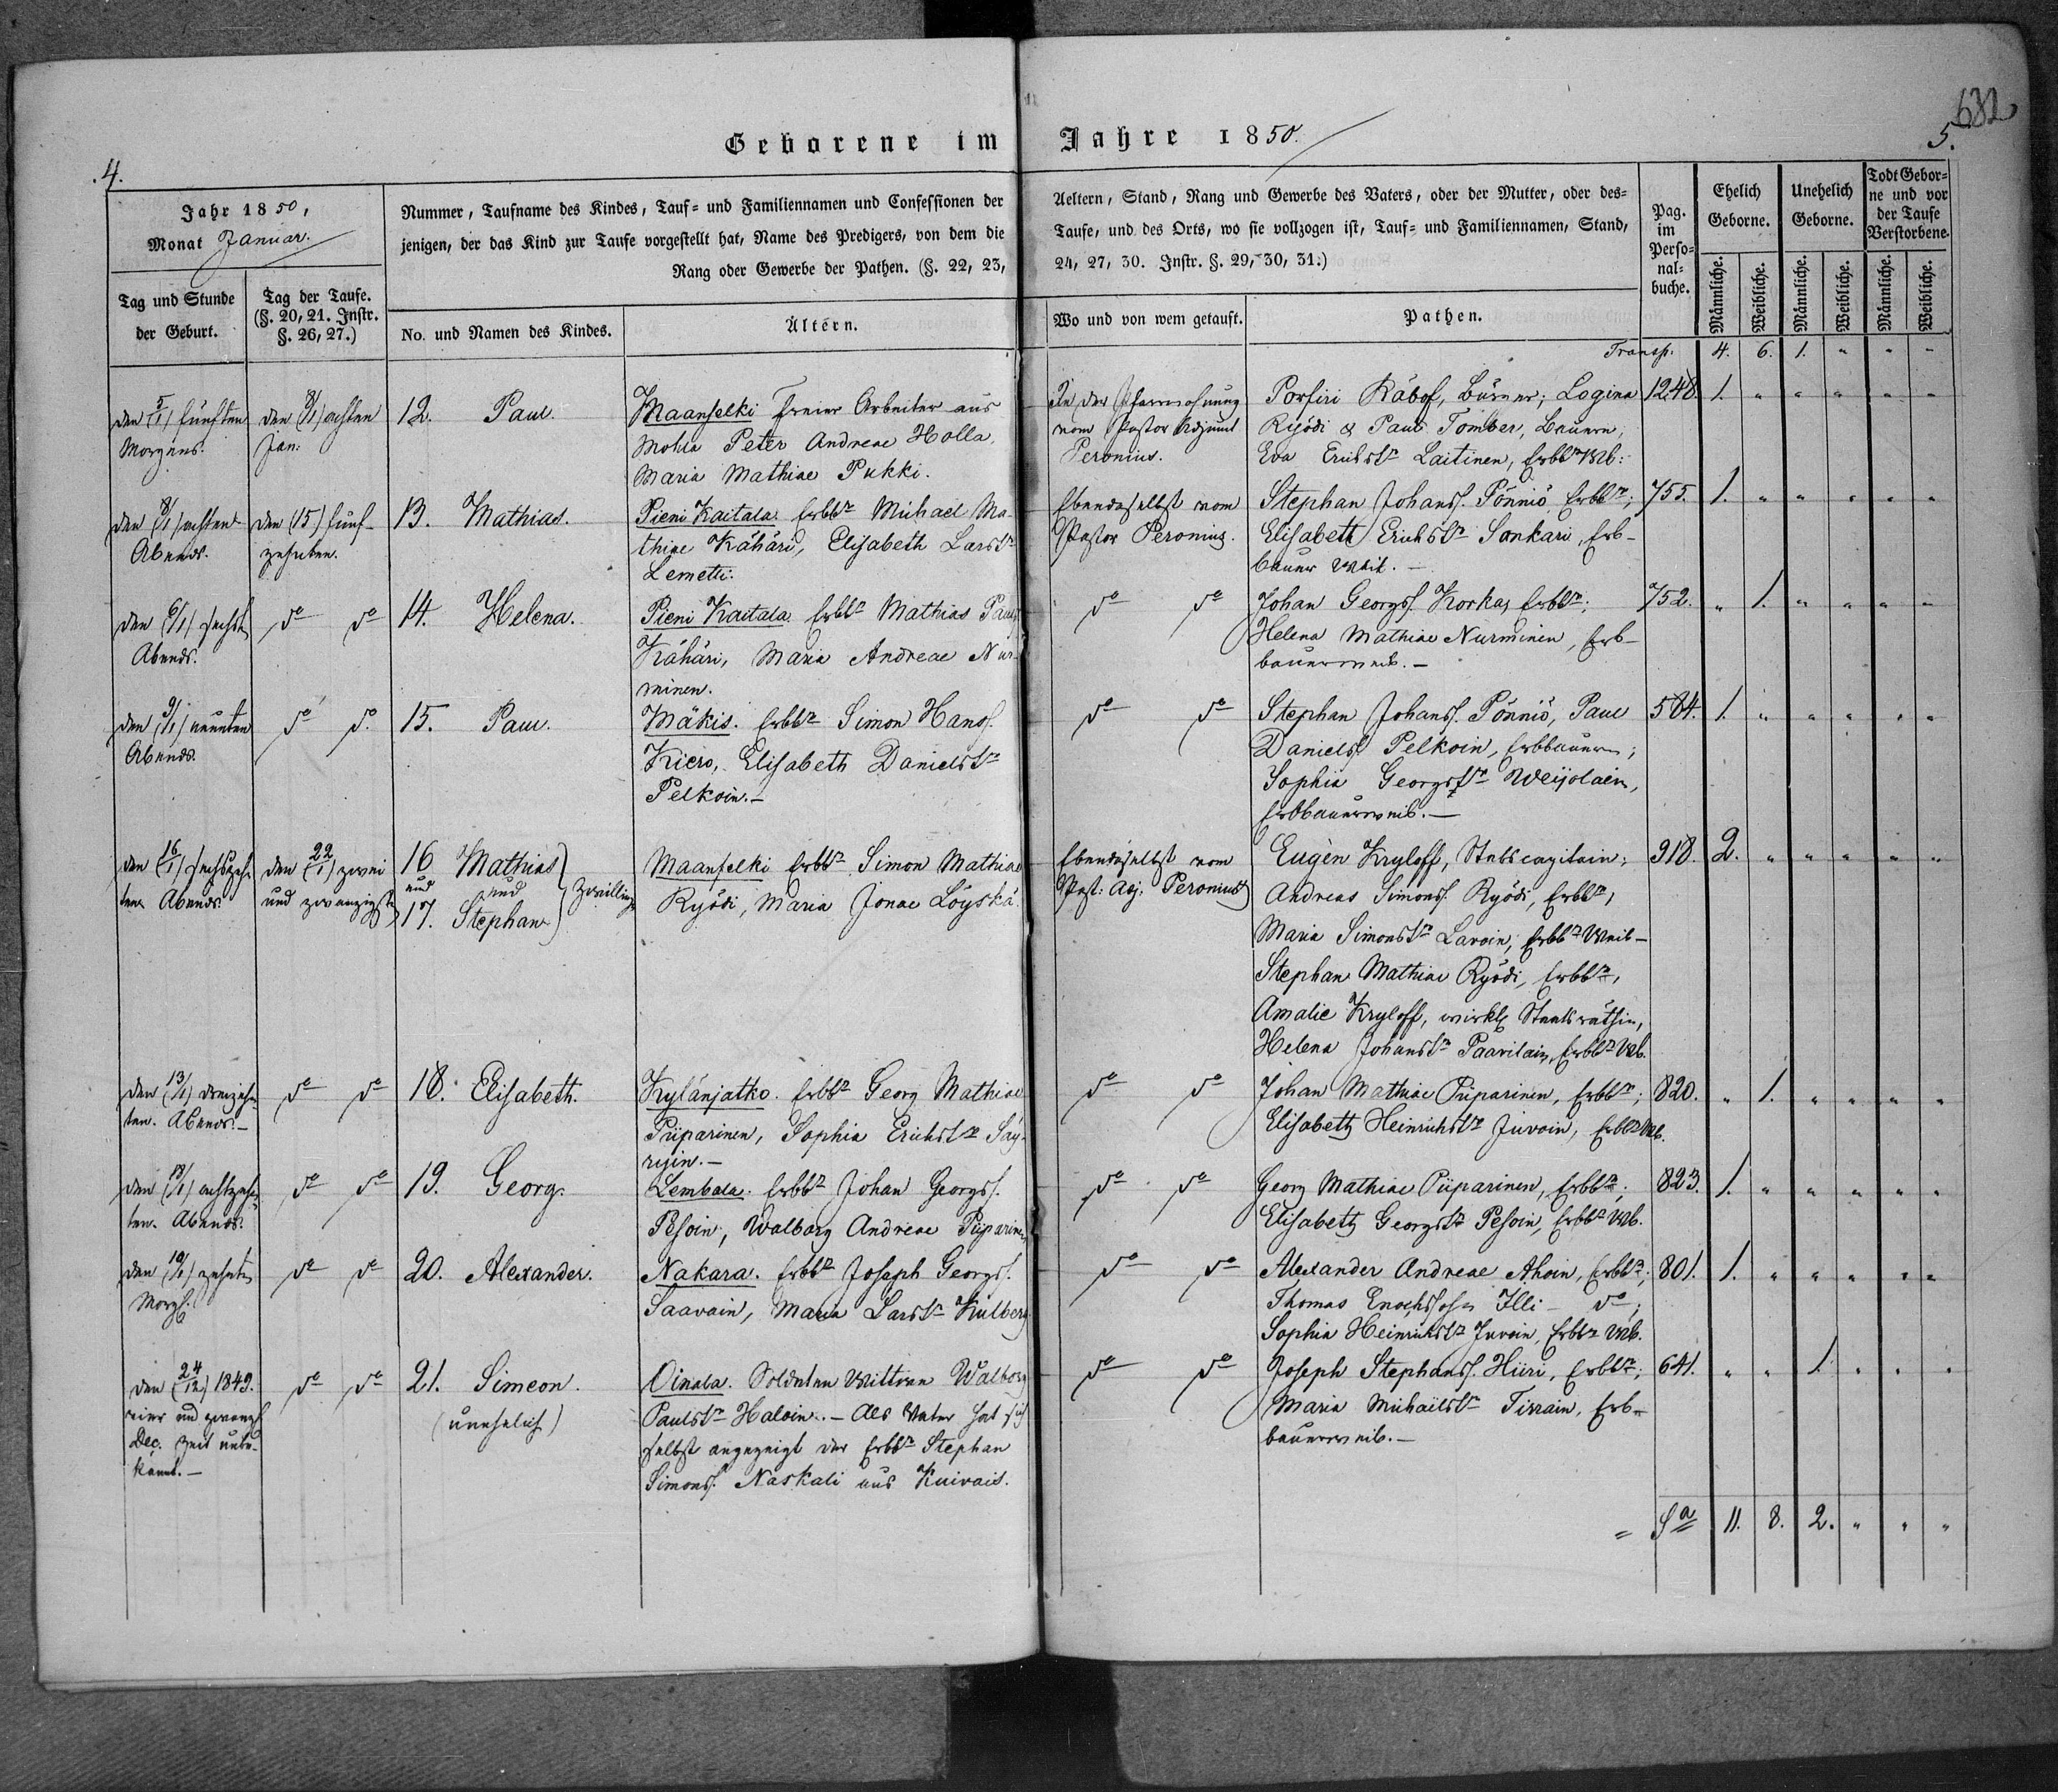 632
Geborene im Jahre 1850.
.4.
5.
Jahr 1850,
Monat Januar.
Tag und Stunde
der Geburt.
Tag der Taufe.
(§. 20, 21. Instr.
§. 26, 27.)
Nummer, Taufname des Kindes, Tauf- und Familiennamen und Confessionen der Aeltern, Stand, Rang und Gewerbe des Vaters, oder der Mutter, oder des-
jenigen, der das Kind zur Taufe vorgestellt hat, Name des Predigers, von dem die Taufe, und des Orts, wo sie vollzogen ist, Tauf- und Familiennamen, Stand,
Rang oder Gewerbe der Pathen. (§. 22, 23, 24, 27, 30. Instr. §. 29, 30, 31.)
No. und Namen des Kindes.
Ältern.
Wo und von wem getauft.
Pathen.
Pag.
im
Perso-
nal-
buche.
Ehelich
Geborne.
Unehelich
Geborne.
Todt Gebor-
ne und vor
der Taufe
Verstorbene.
Männliche.
Weibliche.
Männliche.
Weibliche.
Männliche.
Weibliche.
Transp. 4. 6. 1. " " "
den (5/1) fünften
Morgens.
den (8/1) achten
Jan:
12. Paul.
Maanselki Freier Arbeiter aus
Mohla Peter Andreae Holla,
Maria Mathiae Pukki.
In der Pfarrwohnung
vom Pastor Adjunct
Peronius.
Porfiri Räbof, Bürger; Logina
Ryödi & Paul Tomber, Bauern;
Eva Erichstr Laitinen, Erbbr Wb:
1248. 1. " " " " "
den (8/1) achten
Abends.
den (15) fünf-
zehnten.
13. Mathias.
Pieni Kaitala. Erbbr Michael Ma-
thiae Kähäri, Elisabeth Larstr
Lemetti.
Ebendaselbst vom
Pastor Peronius.
Stephan Johanss. Pönniö, Erbbr;
Elisabeth Erichstr Sonkari, Erb-
bauer Weib. —
755. 1. " " " " "
den (6/1) sechsten
Abends.
do do
14. Helena.
Pieni Kaitala. Erbbr Mathias Pauls.
Kähäri, Maria Andreae Nur-
minen.
do do
Johan Georgs. Korkas, Erbbr;
Helena Mathiae Nurminen, Erb-
bauerweib. —
752. " 1. " " " "
den (9/1) neunten
Abends.
do do
15. Paul.
Mäkis. Erbbr Simon Hans.
Kiero, Elisabeth Danielstr
Pelkoin. —
do do
Stephan Johanss. Pönniö, Paul
Daniels. Pelkoin, Erbbauern;
Sophia Georgstr Weijolain,
Erbbauerweib. —
564. 1. " " " " "
den (16/1) sechszehn-
ten Abends.
den (22/1) zwei
und zwanzigsten
16 Mathias
und und } Zwillinge
17. Stephan
Maanselki Erbbr Simon Mathiae
Ryödi, Maria Jonae Löyskä.
Ebendaselbst vom
Past: Adj. Peronius
Eugèn Kryloff, Stabscapitain;
Andreas Simonss. Ryödi, Erbbr,
Maria Simonstr Lavoin, Erbbr Weib —
Stephan Mathiae Ryödi, Erbbr,
Amalie Kryloff, wirkl. Staatsräthin,
Helena Johanstr Paavilain, Erbbr Wb.
918. 2. " " " " "
den (13/1) dreizehn-
ten. Abends. —
do do
18. Elisabeth.
Kylänjatko. Erbbr Georg Mathiae
Piiparinen, Sophia Erichstr Säy-
rijin. —
do do
Johan Mathiae Piiparinen, Erbbr;
Elisabeth Heinrichstr Juvoin, Erbbr Wb.
820. " 1. " " " "
den (18/1) achtzehn-
ten. Abends.
do do
19. Georg.
Lembala. Erbbr Johan Georgs.
Pesoin, Walborg Andreae Piiparinen,
do do
Georg Mathiae Piiparinen, Erbbr;
Elisabeth Georgstr Pesoin, Erbbr Wb.
823. 1. " " " " "
den (10/1) zehnten
Morgs.
do do
20. Alexander.
Nakara. Erbbr Joseph Georgs.
Saavain, Maria Larstr Kulberg
do do
Alexander Andreae Ahoin, Erbbr;
Thomas Enochssohn Illi — do;
Sophia Heinrichstr Juvoin, Erbbr Wb.
801. 1. " " " " "
den (24/12) 1849.
vier und zwanzigst
Dec. Zeit unbe-
kannt. —
do do
21. Simeon.
(unehelich)
Oinala. Soldaten Wittwe Walborg
Paulstr Haloin. — Als Vater hat sich
selbst angezeigt der Erbbr Stephan
Simons. Naskali aus Kuivais.
do do
Joseph Stephans. Hiiri, Erbbr;
Maria Michailstr Tirrain, Erb-
bauerweib. —
641. " " 1. " " "
= Sa 11. 8. 2. " " "